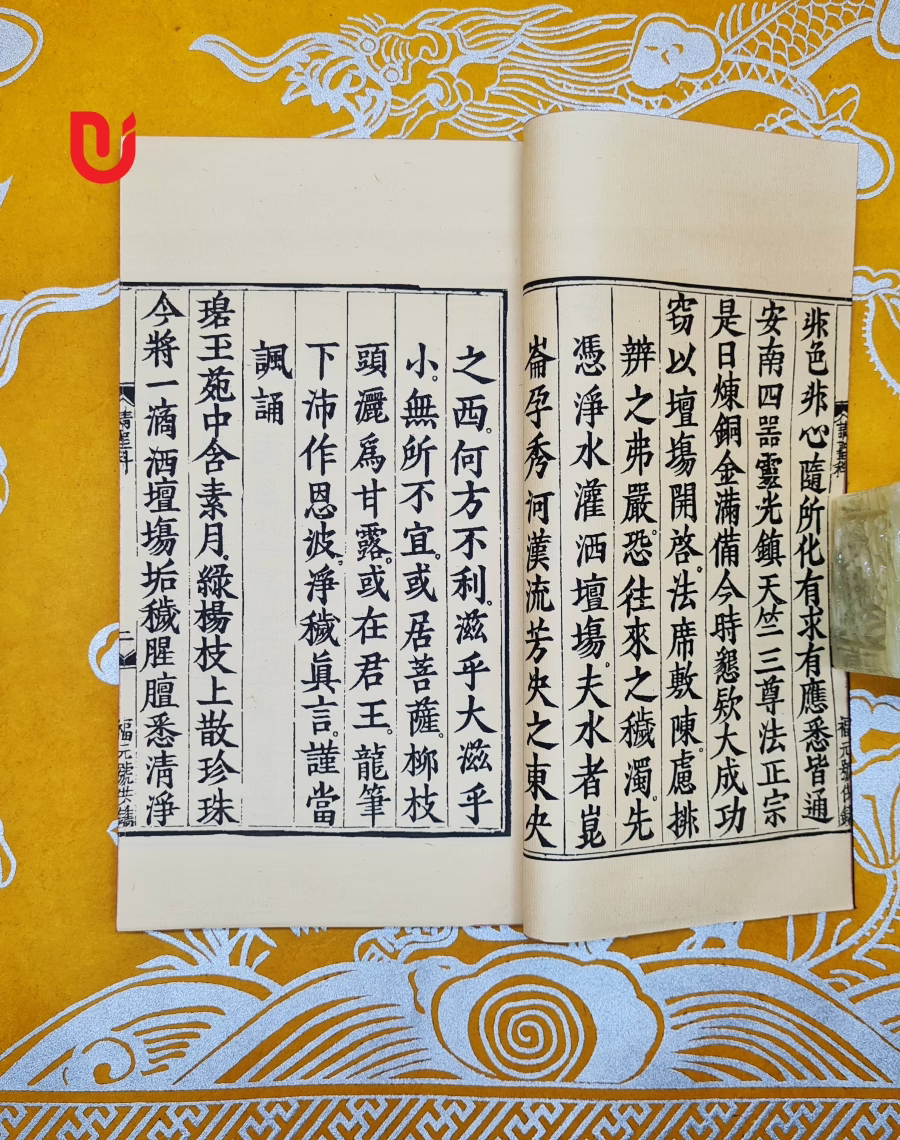 非色非心隨所化有求有應悉皆通
安南四噐霻光鎮天竺三尊法正宗
是日煉銅金滿備今時懇欵大成功
窃以壇塲開啓。法席敷陳。慮排
辨之弗嚴。恐往來之穢濁。先
憑淨水灌洒壇塲。夫水者崑
崙孕秀河漢流芳决之東决
之西。何方不利。滋乎大滋乎
小。無所不宜。或居菩薩。柳枝
頭灑爲甘露。或在君王。龍筆
下沛作恩波。淨穢眞言。謹當
諷誦
玉苑中含素月。綠楊枝上散珍珠
今將一滴洒壇塲垢穢腥膻悉清淨
請聖科
二
福元號供鐫